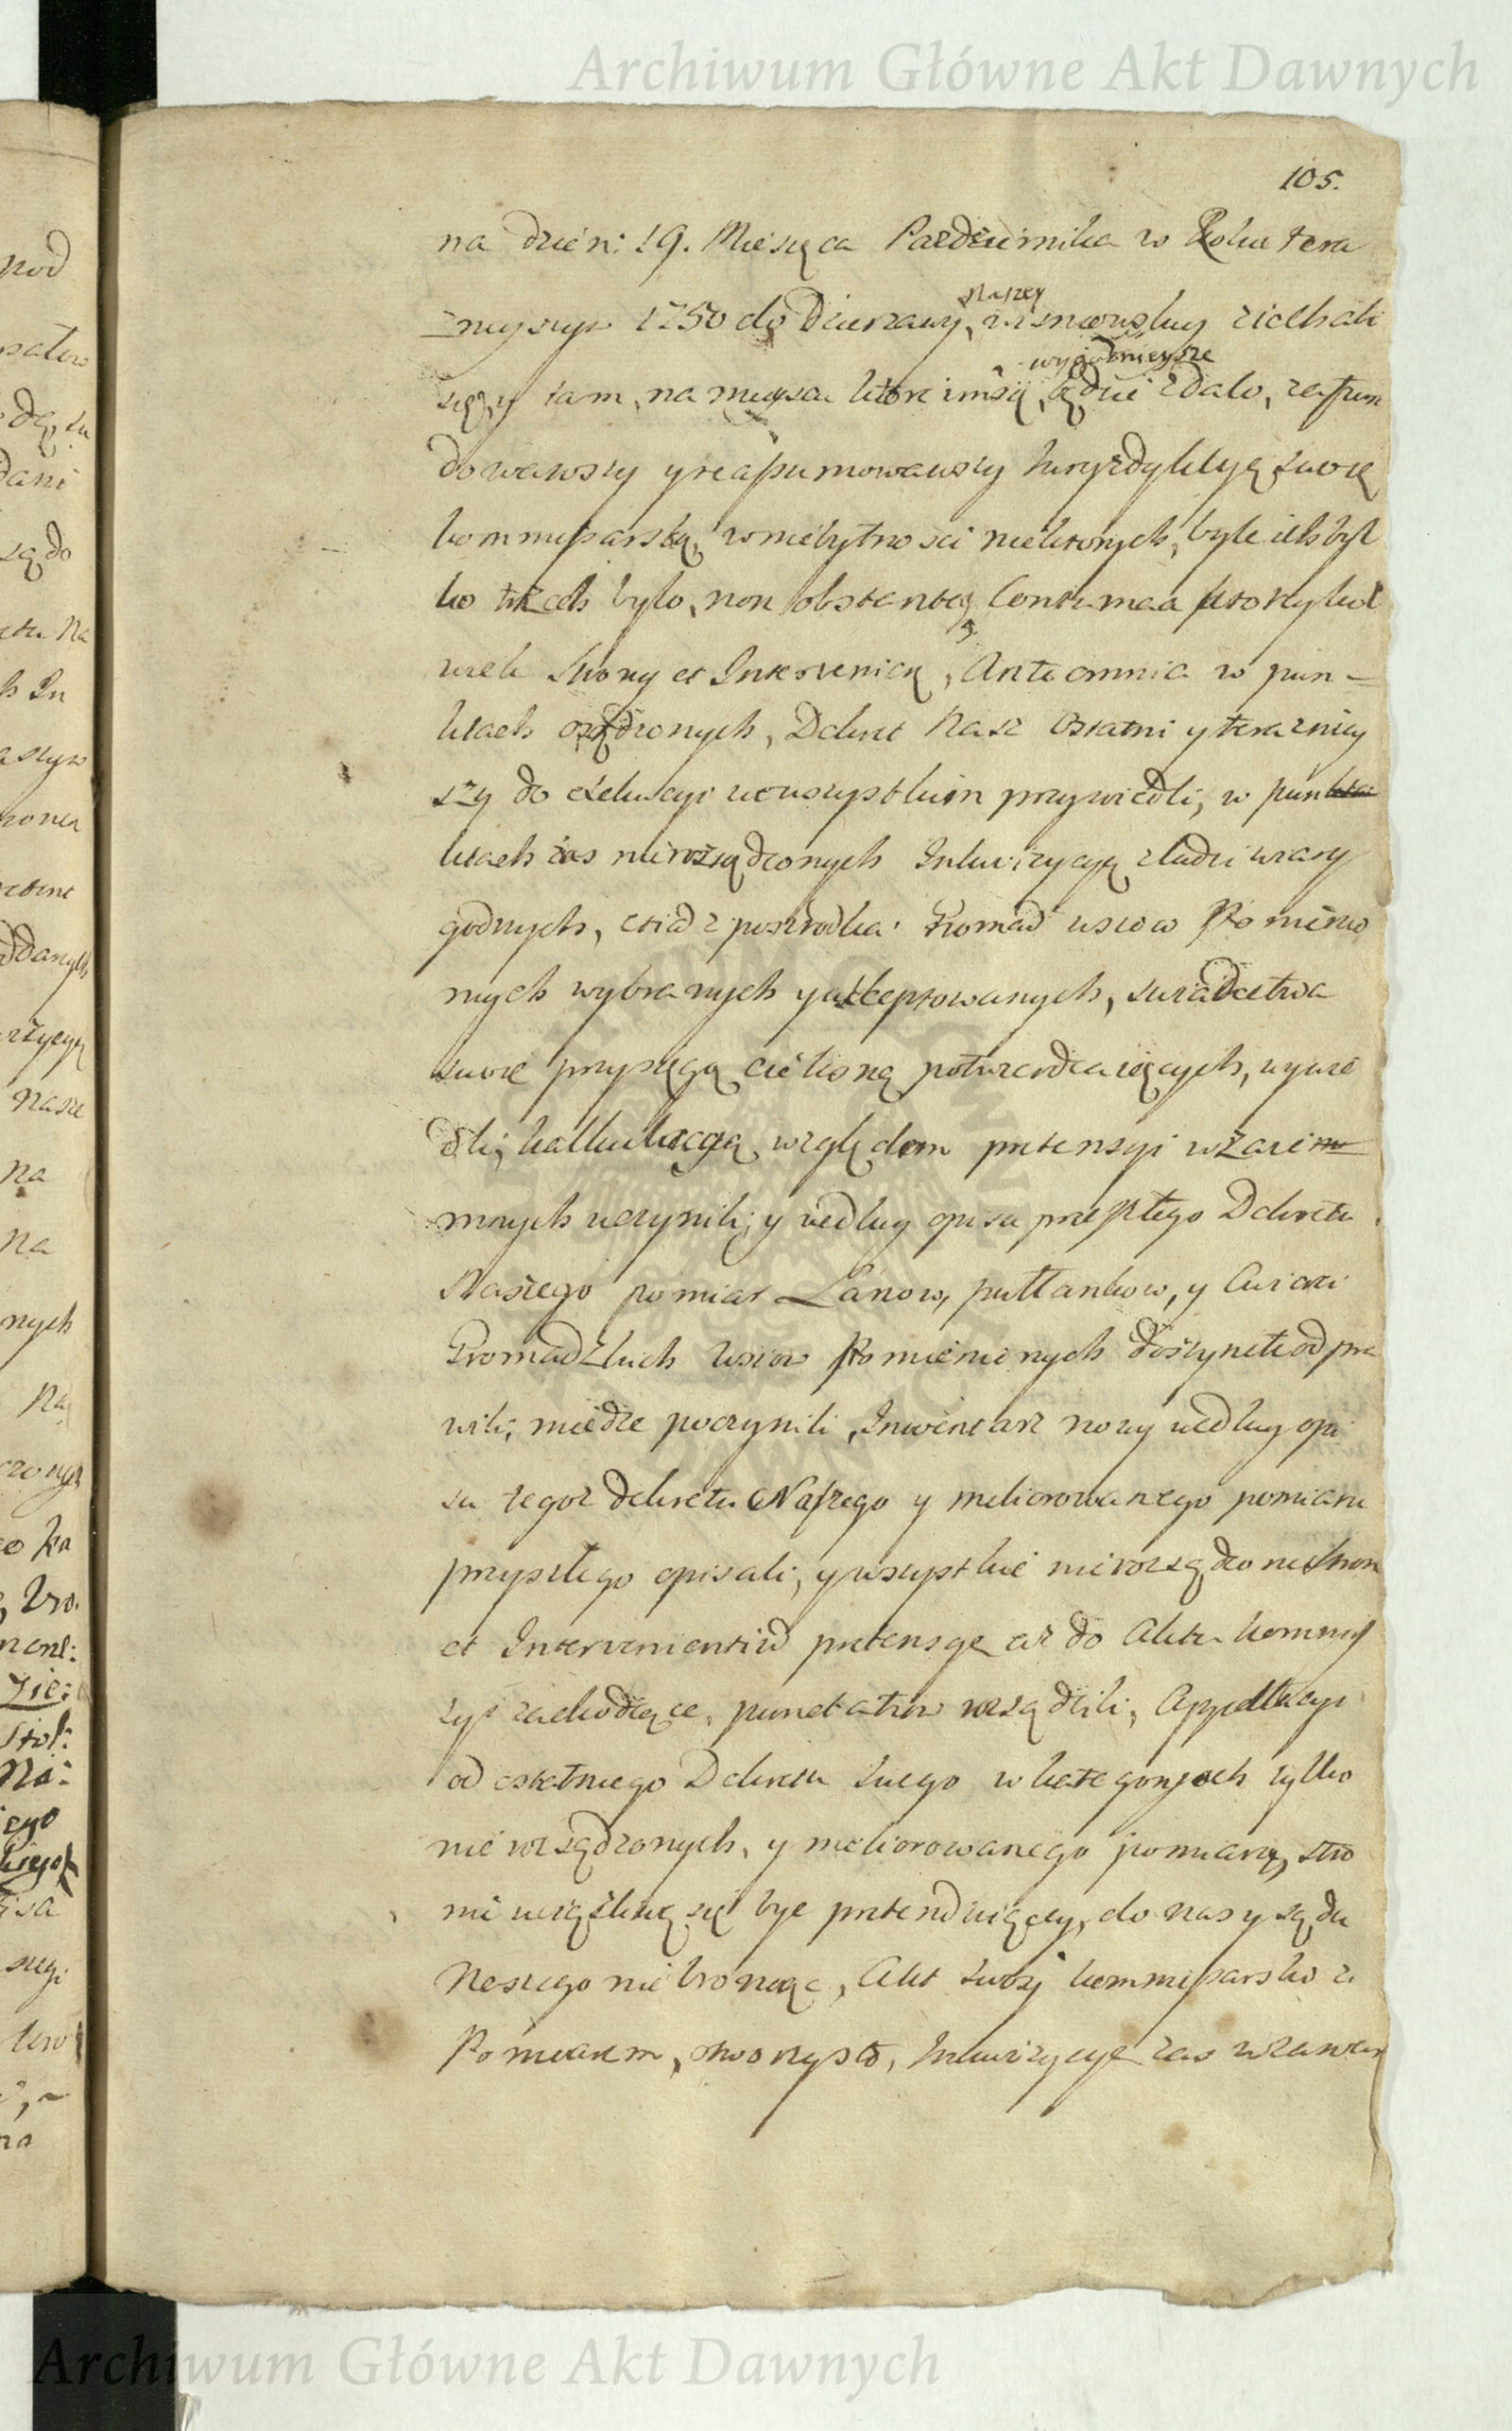 Archiwum Główne Akt Dawnych
105.
na dzień: 19. Miesięca Pazdziernika w Roku tera
znieyszym 1750 do Dzierzawy Naszey ziechali
się, y tam, na mieysca ktore im się wygodnieysze będzie zdało, zafun
dowawszy y reassumowawszy Juryzdykcyą swoię
kommissarską, w niebytnosci niektorych, byle ich tyl
ko trzech było, non obstante Contumacia ktoreykol
wiek Strony et Intervenien, Ante omnia w pun-
ktach osądzonych, Dekret Nasz Ostatni y terazniey
szy do exekucyi we wszystkim przywiedli, w punktach
ktach zas nierozsądzonych Inkwizycyą z ludzi wiary
godnych, et id z posrzodka Gromad wsiow Pomienio
nych wybranych y akceptowanych, swiadectwa
swoie przysięgą cielesną potwierdzaiących, wywie
dli, kalkulacyą względem pretensyi wzaiem
mnych uczynili, y według opisu przeszłego Dekretu
Naszego pomiar Łanow, pułłankow, y Cwierci
Gromadzkich wsiow Pomienionych doszyncte odpra
wili, miedze poczynili, Inwentarz nowy według opi
su tegoz dekretu Naszego y meliorowanego pomiaru
przyszłego opisali, y wszystkie nierozsądzone stron
et Intervenientium pretensye az do Aktu kommis
syi zachodzące, punctatim rozsądzili, Appellacyi
od ostatniego Dekretu swego w kategoryach tylko
nie rozsądzonych, y meliorowanego pomiaru, stro
nie uciążliwą się być pretenduiącey, do nas y sądu
Naszego nie broniąc, Akt swoy kommissarski z
Pomiarem, otworzysto, Inkwizycye zas w zawar
Archiwum Główne Akt Dawnych